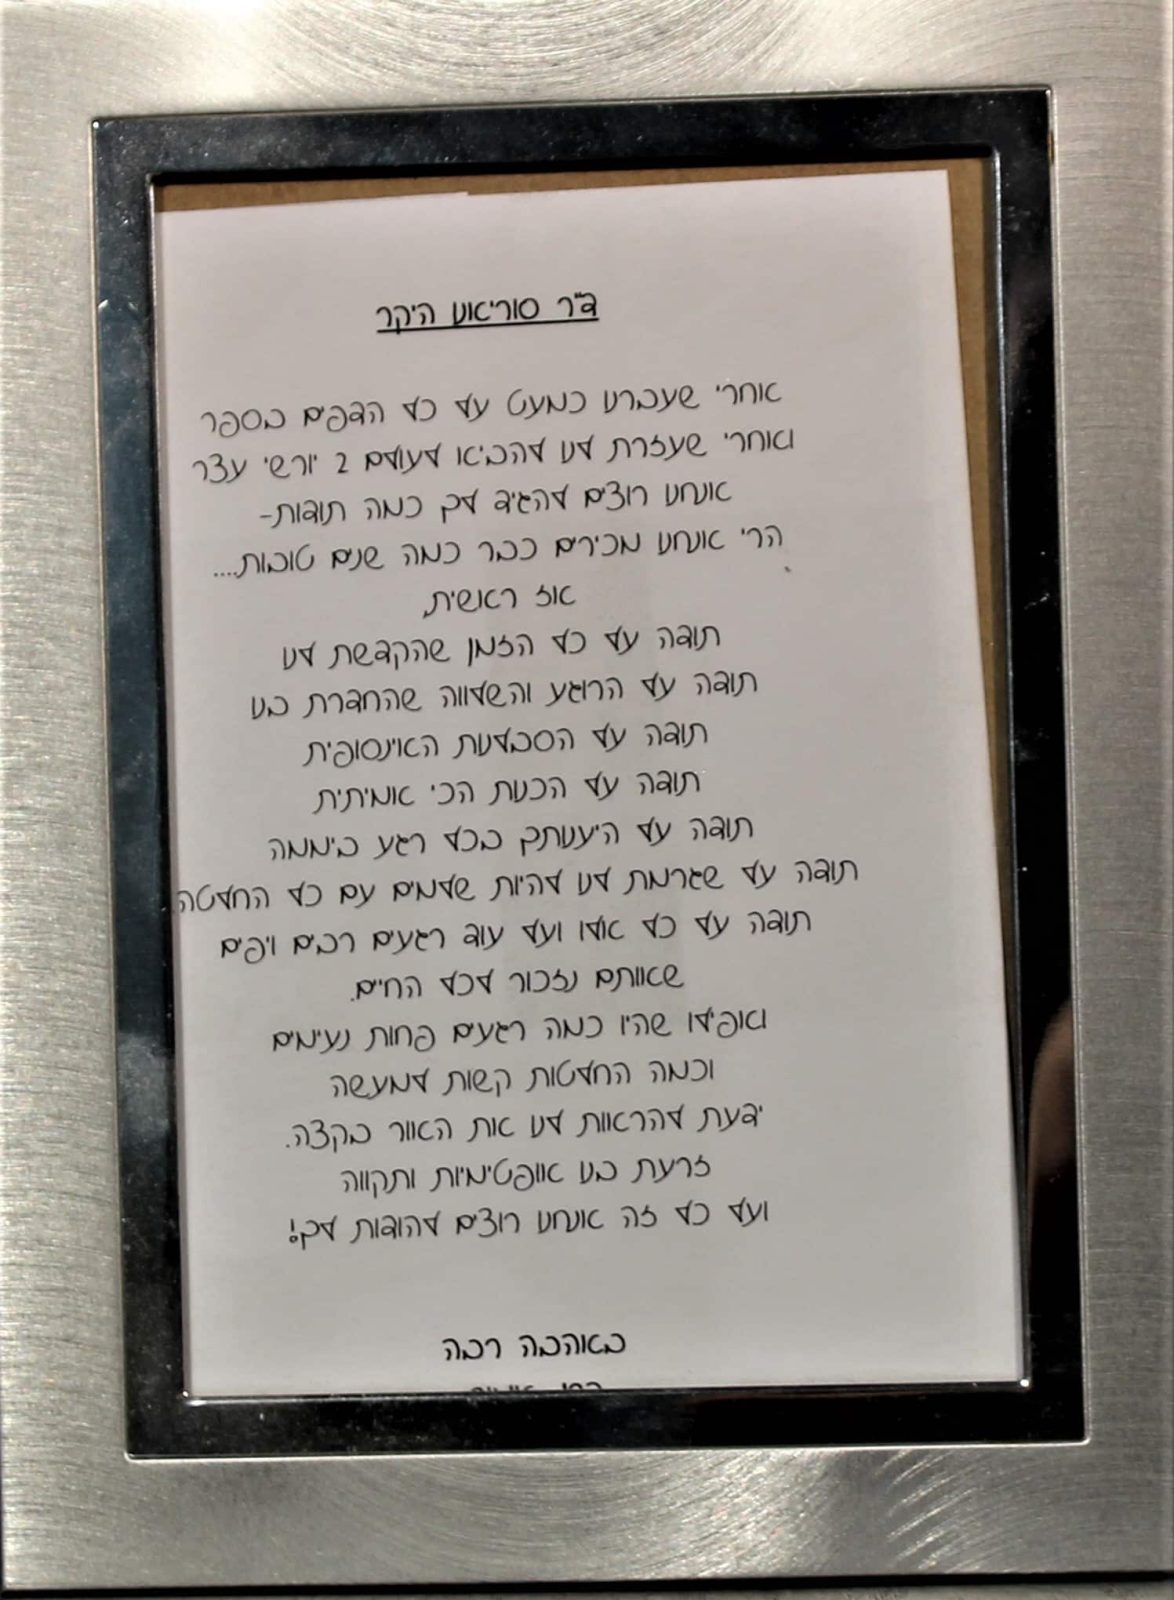 ד"ר סוריאנו היקר
אחרי שעברנו כמעט על כל הדפים בספר
ואחרי שעזרת לנו להביא לעולם 2 יורשי עצר
אנחנו רוצים להגיד לך כמה תודות-
הרי אנחנו מכירים כבר כמה שנים טובות....
אז ראשית,
תודה על כל הזמן שהקדשת לנו
תודה על הרוגע והשלווה שהחדרת בנו
תודה על הסבלנות האינסופית
תודה על הכנות הכי אמיתית
תודה על היענותך בכל רגע ביממה
תודה על שגרמת לנו להיות שלמים עם כל החלטה
תודה על כל אלו ועל עוד רגעים רבים ויפים
שאותם נזכור לכל החיים.
ואפילו שהיו כמה רגעים פחות נעימים
וכמה החלטות קשות למעשה
ידעת להראות לנו את האור בקצה.
זרעת בנו אופטימיות ותקווה
ועל כל זה אנחנו רוצים להודות לך!
באהבה רבה